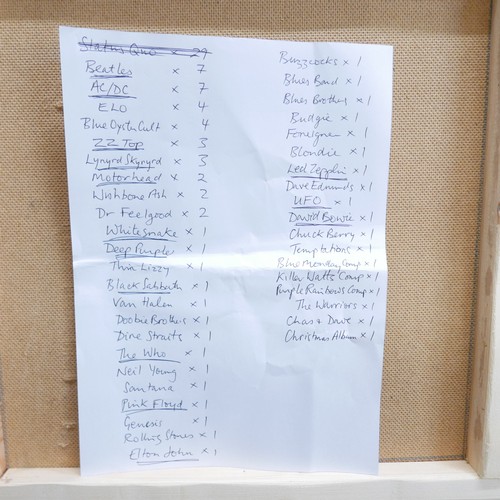 Status Quo x 29
Beatles x 7
AC/DC x 7
ELO x 4
Blue Oyster Cult x 4
ZZ Top x 3
Lynyrd Skynyrd x 3
Motorhead x 2
Wishbone Ash x 2
Dr Feelgood x 2
Whitesnake x 1
Deep Purple x 1
Thin Lizzy x 1
Black Sabbath x 1
Van Halen x 1
Doobie Brothers x 1
Dire Straits x 1
The Who x 1
Neil Young x 1
Santana x 1
Pink Floyd x 1
Genesis x 1
Rolling Stones x 1
Elton John x 1
Buzzcocks x 1
Blues Band x 1
Blues Brothers x 1
Budgie x 1
Foreigner x 1
Blondie x 1
Led Zepplin x 1
Dave Edmunds x 1
UFO x 1
David Bowie x 1
Chuck Berry x 1
Temptations x 1
Blue Monday Comp x 1
Killer Watts Comp x 1
Purple Rainbows Comp x 1
The Warriors x 1
Chas + Dave x 1
Christmas Album x 1